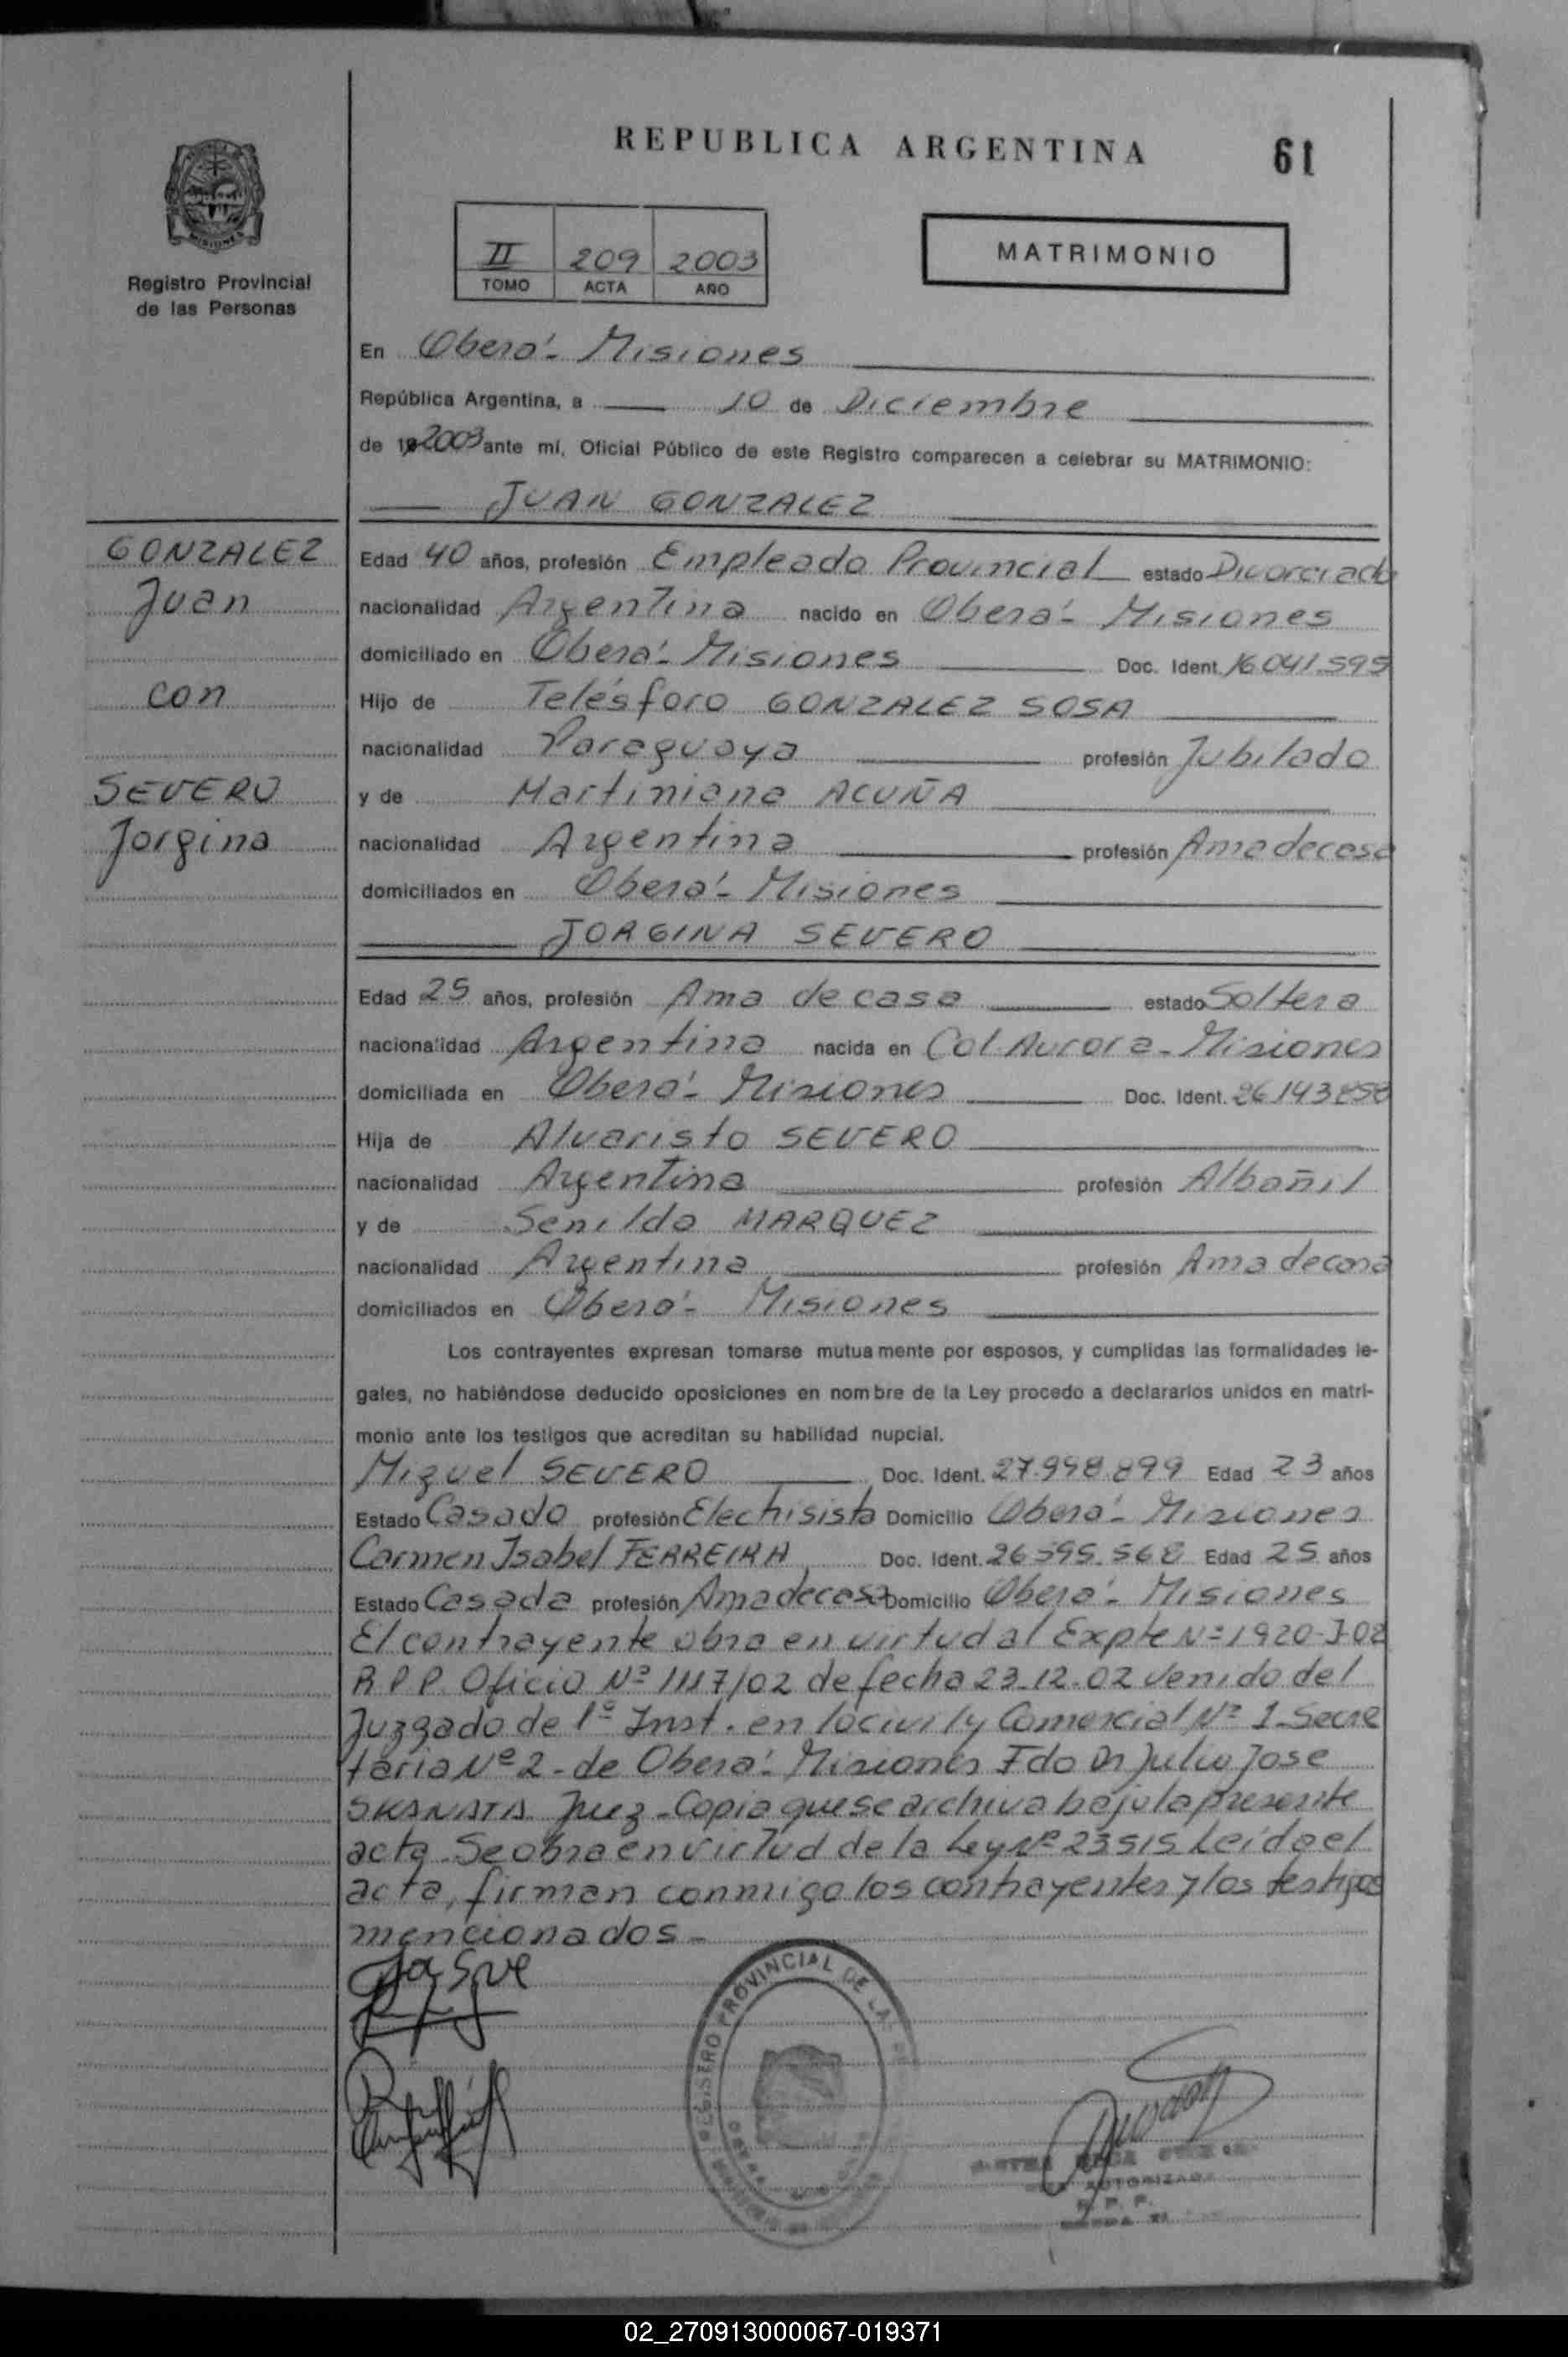 REPUBLICA ARGENTINA
61
MISIONES
Registro Provincial
de las Personas
II 209 2003
TOMO ACTA AÑO
MATRIMONIO
En Oberá - Misiones
República Argentina, a 10 de Diciembre
de 19 2003 ante mí, Oficial Público de este Registro comparecen a celebrar su MATRIMONIO:
JUAN GONZALEZ
GONZALEZ
Juan
con
SEVERO
Jorgina
Edad 40 años, profesión Empleado Provincial estado Divorciado
nacionalidad Argentina nacido en Oberá - Misiones
domiciliado en Oberá - Misiones Doc. Ident. 16.041.595
Hijo de Telésforo GONZALEZ SOSA
nacionalidad Paraguaya profesión Jubilado
y de Martiniana ACUÑA
nacionalidad Argentina profesión Ama de casa
domiciliados en Oberá - Misiones
JORGINA SEVERO
Edad 25 años, profesión Ama de casa estado Soltera
nacionalidad Argentina nacida en Col Aurora - Misiones
domiciliada en Oberá - Misiones Doc. Ident. 26.143.858
Hija de Alvaristo SEVERO
nacionalidad Argentina profesión Albañil
y de Senilda MARQUEZ
nacionalidad Argentina profesión Ama de casa
domiciliados en Oberá - Misiones
Los contrayentes expresan tomarse mutuamente por esposos, y cumplidas las formalidades le-
gales, no habiéndose deducido oposiciones en nombre de la Ley procedo a declararlos unidos en matri-
monio ante los testigos que acreditan su habilidad nupcial.
Miguel SEVERO Doc. Ident. 27.998.899 Edad 23 años
Estado Casado profesión Electrisista Domicilio Oberá - Misiones
Carmen Isabel FERREIRA Doc. Ident. 26.595.568 Edad 25 años
Estado Casada profesión Ama de casa Domicilio Oberá - Misiones
El contrayente obra en virtud al Expte Nº 1920-J-02
R.P.P. Oficio Nº 1117/02 de fecha 23.12.02 venido del
Juzgado de 1º Inst. en lo civil y Comercial Nº 1 - Secre
taria Nº 2 - de Oberá - Misiones Fdo Dr Julio Jose
SKANATA Juez - Copia que se archiva bajo la presente
acta. Se obra en virtud de la Ley Nº 23515 Leida el
acta, firman conmigo los contrayentes y los testigos
mencionados -
REGISTRO PROVINCIAL DE LAS
AUTORIZADA
R. P. P.
02_270913000067-019371